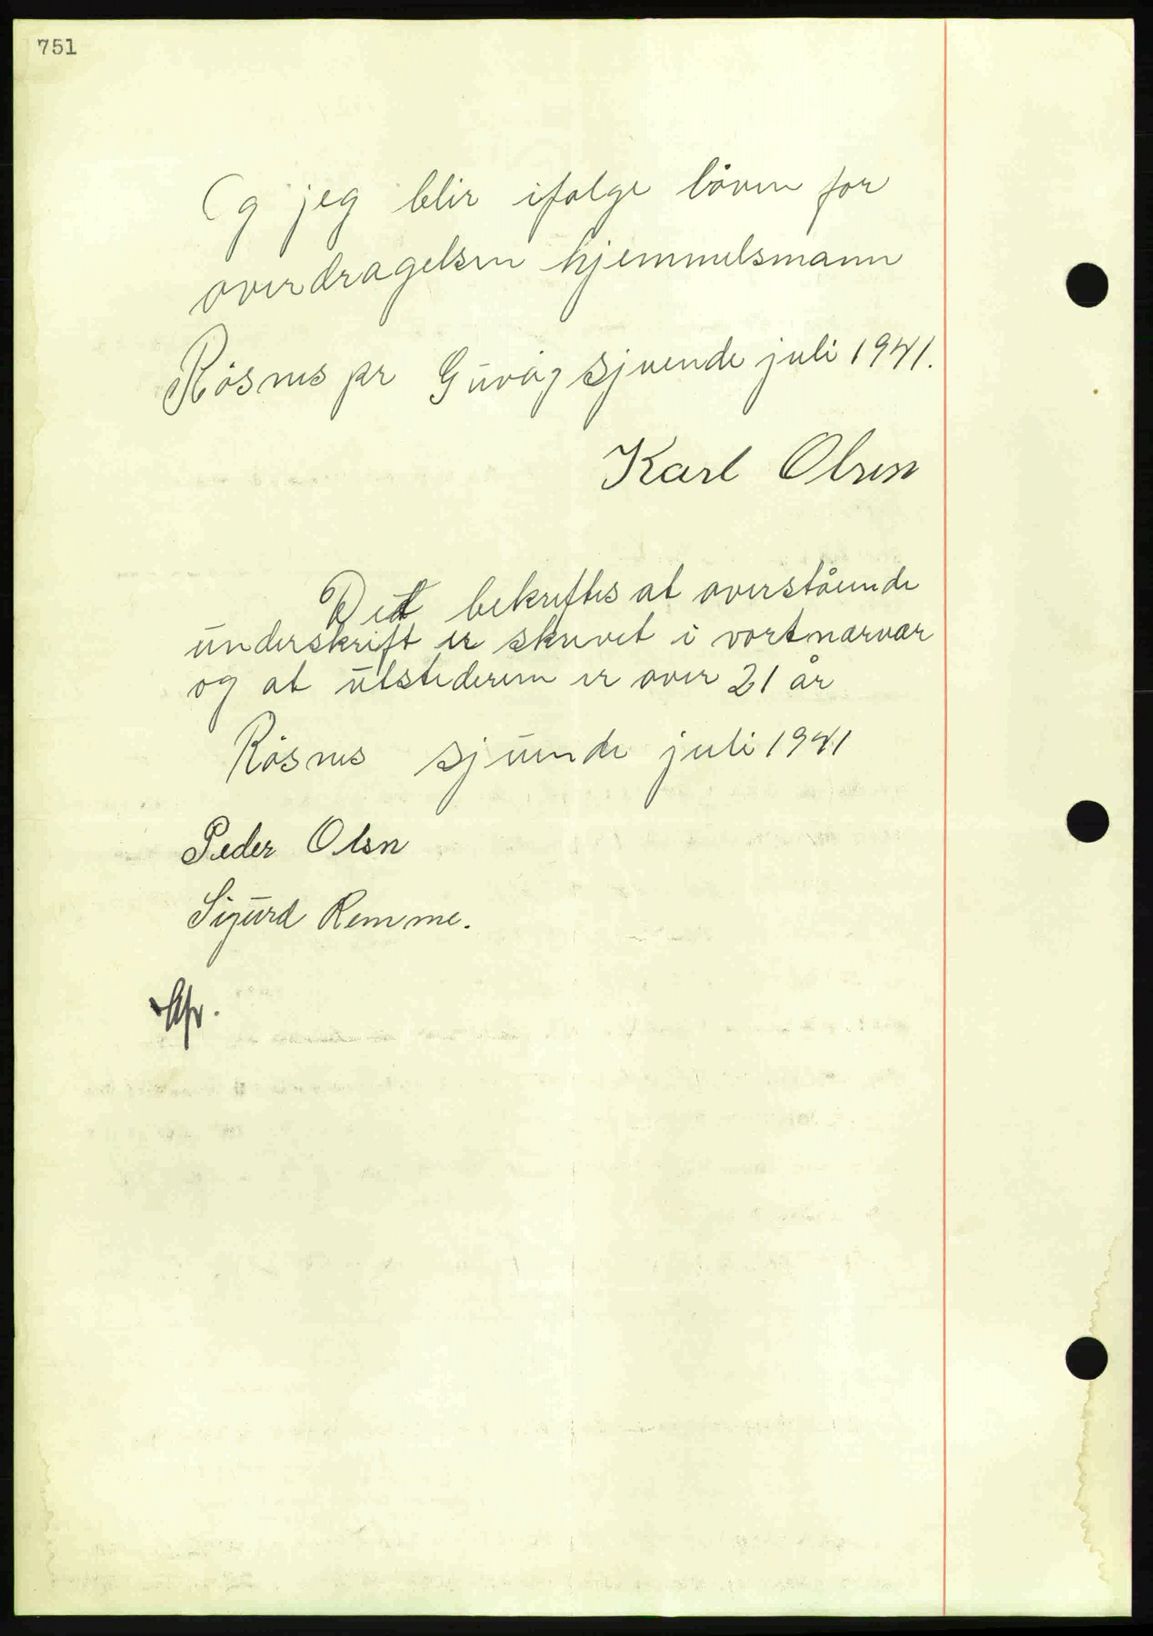 751
Og jeg blir ifølge loven for
overdragelsen hjemmelsmann
Røsnes pr Guvåg sjuende juli 1941.
Karl Olsen
Det bekreftes at overstående
underskrift er skrevet i vort nærvær
og at utstederen er over 21 år
Røsnes sjuende juli 1941
Peder Olsn
Sigurd Remme.